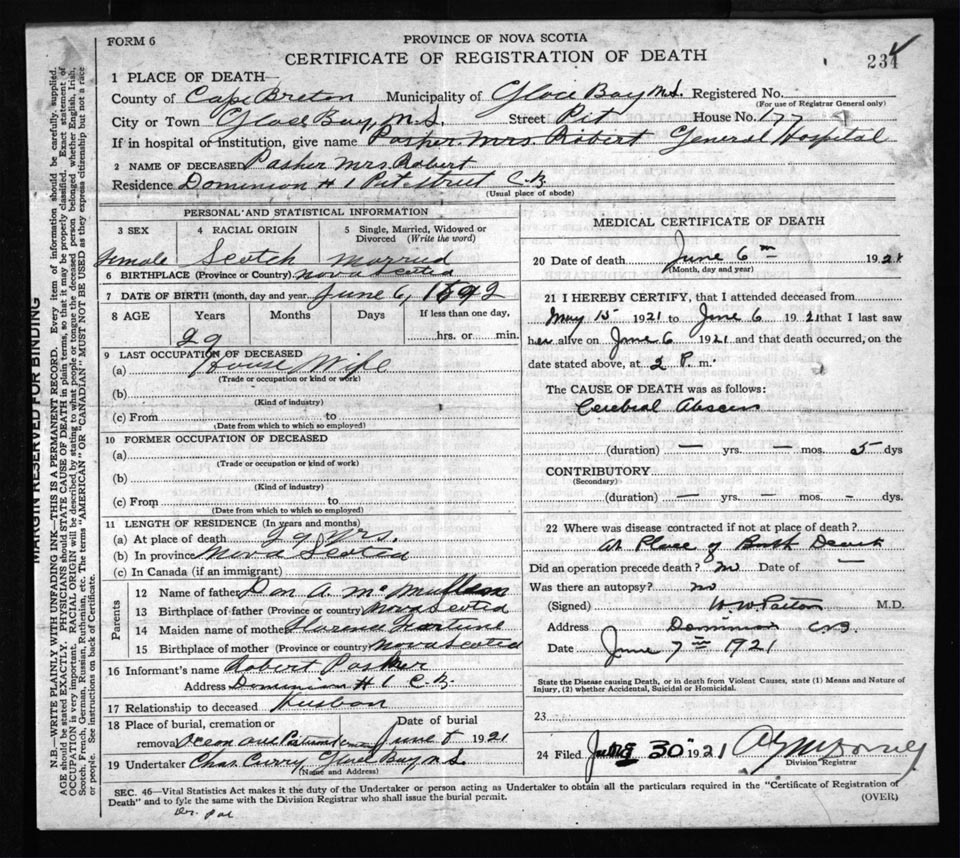 FORM 6
PROVINCE OF NOVA SCOTIA
CERTIFICATE OF REGISTRATION OF DEATH
234
1 PLACE OF DEATH
County of Cape Breton Municipality of Glace Bay N.S. Registered No.
(For use of Registrar General only)
City or Town Glace Bay, N.S. Street Pit House No. 177
If in hospital or institution, give name Parker Mrs. Robert General Hospital
2 NAME OF DECEASED Parker Mrs Robert
Residence Dominion # 1 Pit Street C.B.
(Usual place of abode)
PERSONAL AND STATISTICAL INFORMATION
3 SEX 4 RACIAL ORIGIN 5 Single, Married, Widowed or Divorced (Write the word)
Female Scotch Married
6 BIRTHPLACE (Province or Country) Nova Scotia
7 DATE OF BIRTH (month, day and year) June 6, 1892
8 AGE Years Months Days If less than one day,
29 hrs. or min.
9 LAST OCCUPATION OF DECEASED
(a) House Wife
(Trade or occupation or kind or work)
(b)
(Kind of industry)
(c) From to
(Date from which to which so employed)
10 FORMER OCCUPATION OF DECEASED
(a)
(Trade or occupation or kind of work)
(b)
(Kind of industry)
(c) From to
(Date from which to which so employed)
11 LENGTH OF RESIDENCE (In years and months)
(a) At place of death 29 Yrs.
(b) In province Nova Scotia
(c) In Canada (if an immigrant)
Parents
12 Name of father Dan A. Mc
13 Birthplace of father (Province or country) Nova Scotia
14 Maiden name of mother Florence Fortune
15 Birthplace of mother (Province or country) Nova Scotia
16 Informant's name Robert Parker
Address Dominion # 1 C.B.
17 Relationship to deceased Husban
18 Place of burial, cremation or removal Ocean ave Date of burial June 8 1921
19 Undertaker Chas. Curry Glace Bay N.S.
(Name and Address)
MEDICAL CERTIFICATE OF DEATH
20 Date of death June 6 th 1921
(Month, day and year)
21 I HEREBY CERTIFY, that I attended deceased from
May 15 1921 to June 6 1921 that I last saw
her alive on June 6 1921 and that death occurred, on the
date stated above, at 2 P. m.
The CAUSE OF DEATH was as follows:
Cerebral Abscess
(duration) — yrs. — mos. 5 dys
CONTRIBUTORY
(Secondary)
(duration) — yrs. — mos. — dys.
22 Where was disease contracted if not at place of death?
At Place of Death
Did an operation precede death? no Date of —
Was there an autopsy? no
(Signed) M.D.
Address Dominion C.B.
Date June 7 th 1921
State the Disease causing Death, or in death from Violent Causes, state (1) Means and Nature of
Injury, (2) whether Accidental, Suicidal or Homicidal.
23
24 Filed June 30 1921
Division Registrar
SEC. 46—Vital Statistics Act makes it the duty of the Undertaker or person acting as Undertaker to obtain all the particulars required in the "Certificate of Registration of
Death" and to fyle the same with the Division Registrar who shall issue the burial permit.
(OVER)
MARGIN RESERVED FOR BINDING
N.B—WRITE PLAINLY WITH UNFADING INK—THIS IS A PERMANENT RECORD. Every item of information should be carefully supplied.
AGE should be stated EXACTLY. PHYSICIANS should STATE CAUSE OF DEATH in plain terms, so that it may be properly classified. Exact statement of
OCCUPATION is very important. RACIAL ORIGIN will be described by stating to what people or tongue the deceased person belonged, whether English, Irish,
Scotch, French, German, Russian, Ruthenian, etc. The terms "AMERICAN" OR "CANADIAN" MUST NOT BE USED as they express citizenship but not a race
or people. See instructions on back of Certificate.